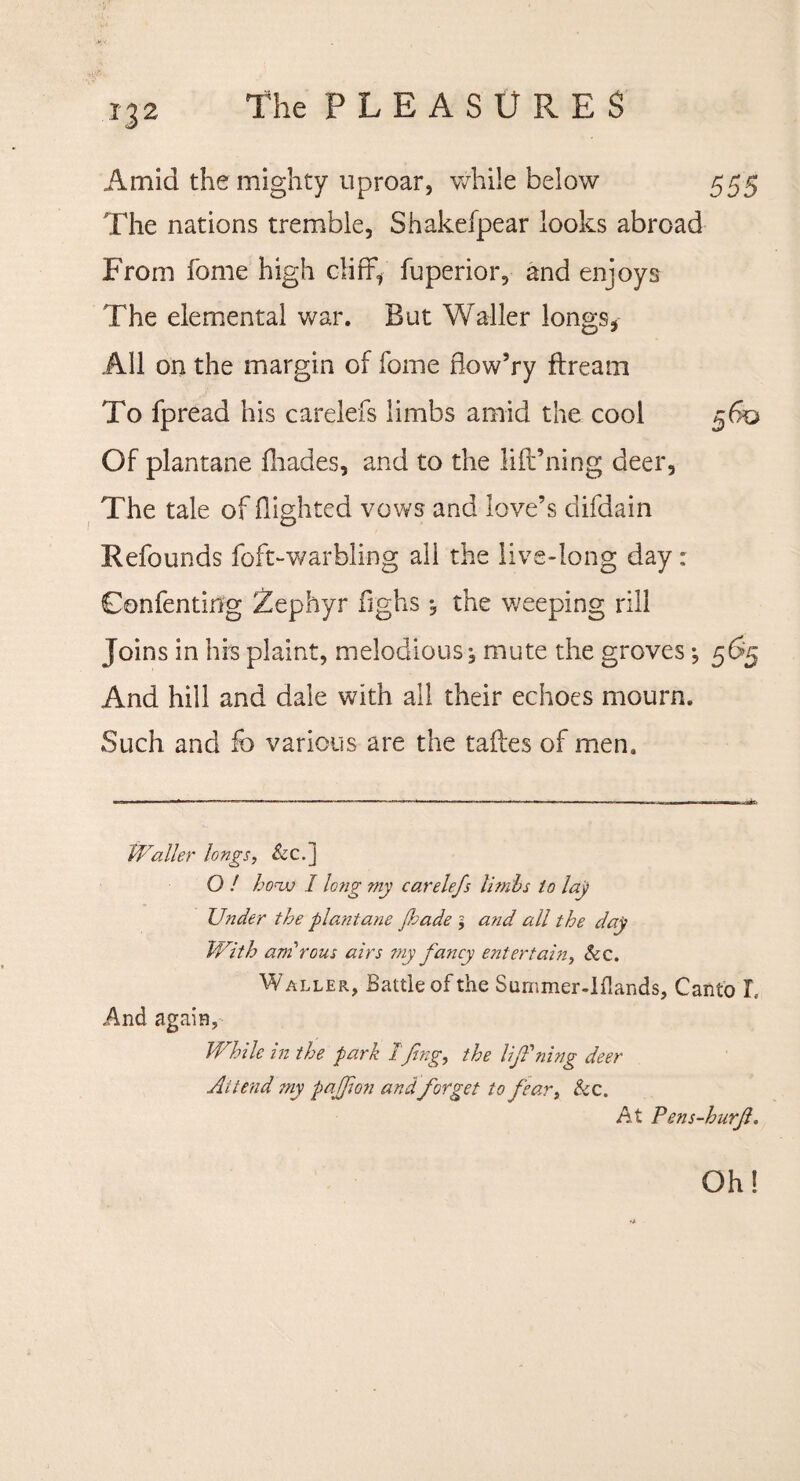 132 The PLEASURES
Amid the mighty uproar, while below 555
The nations tremble, Shakeſpear looks abroad
From ſome high cliff, ſuperior, and enjoys
The elemental war. But Waller longs,
All on the margin of ſome flow’ry ſtream
To ſpread his careleſs limbs amid the cool 560
Of plantane ſhades, and to the liſt’ning deer,
The tale of ſlighted vows and love’s diſdain
Reſounds ſoft-warbling all the live-long day:
Conſenting Zephyr ſighs; the weeping rill
Joins in his plaint, melodious; mute the groves; 565
And hill and dale with all their echoes mourn.
Such and ſo various are the taſtes of men.
Waller longs, &c.]
O! how I long my careleſs limbs to lay
Under the plantane ſhade; and all the day
With am’rous airs my fancy entertain, &c.
WALLER, Battle of the Summer-Iſlands, Canto I.
And again,
While in the park I ſing, the liſt’ning deer
Attend my paſſion and forget to fear, &c.
At Pens-hurſt.
Oh!